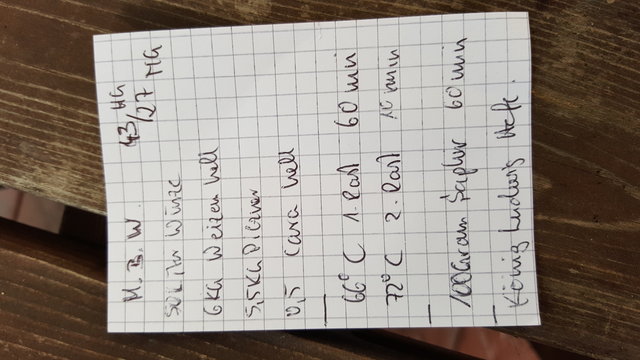 M. B. W. 43 HG
/27 HG
50 Liter Würze
6 KG Weizen hell
5,5 KG Pilsner
0,5 Cara hell
66° C 1. Rast 60 min
72° C 2. Rast 10 min
100 Gram Saphir 60 min
König Ludwig Hefe.